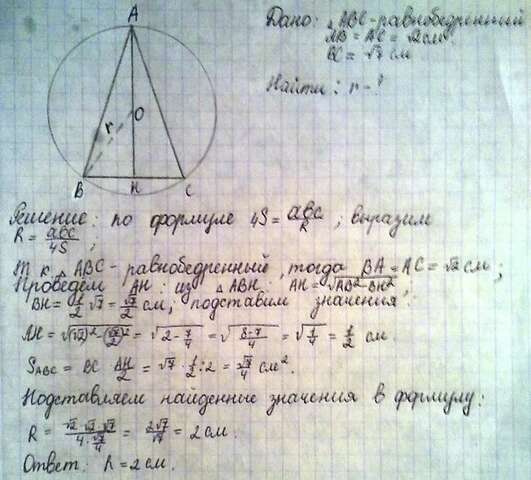 A
O
r
B
H
C
Дано: △ABC-равнобедренный
AB = AC = √2 см.
BC = √7 см
Найти: r-?
Решение: по формуле 4S = abc/R ; выразим
R = abc/4S ;
т.к. △ABC-равнобедренный, тогда BA = AC = √2 см;
Проведем AH: из △ABH: AH=√(AB²-BH²);
BH= 1/2·√7 = √7/2 см; подставим значения:
AH = √((√2)²-(√7/2)²) = √(2-7/4) = √((8-7)/4) = √(1/4) = 1/2 см.
S_ABC = BC·AH/2 = √7·1/2:2 = √7/4 см².
Подставляем найденные значения в формулу:
R = (√2·√2·√7)/(4·√7/4) = 2√7/√7 = 2 см.
Ответ: R = 2 см.